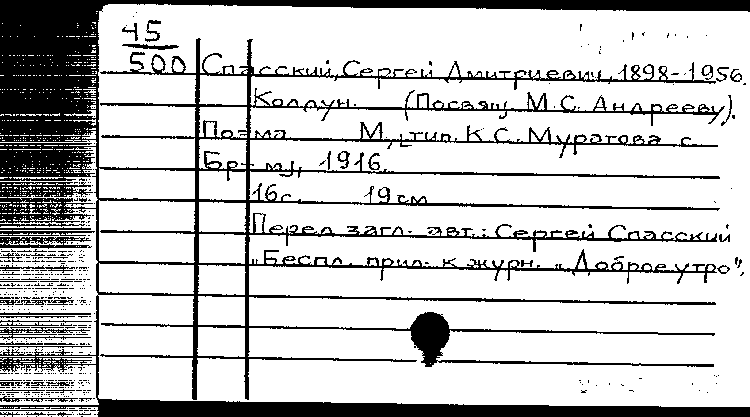 45
500
Спасский, Сергей Дмитриевич, 1898-1956.
Колдун. (Посвящ. М.С. Андрееву).
Поэма. М., тип. К.С. Муратова с.
Бр- 1916.
16с. 19 см
Перед загл. авт.: Сергей Спасский
„Беспл. прил. к журн. „Доброе утро",